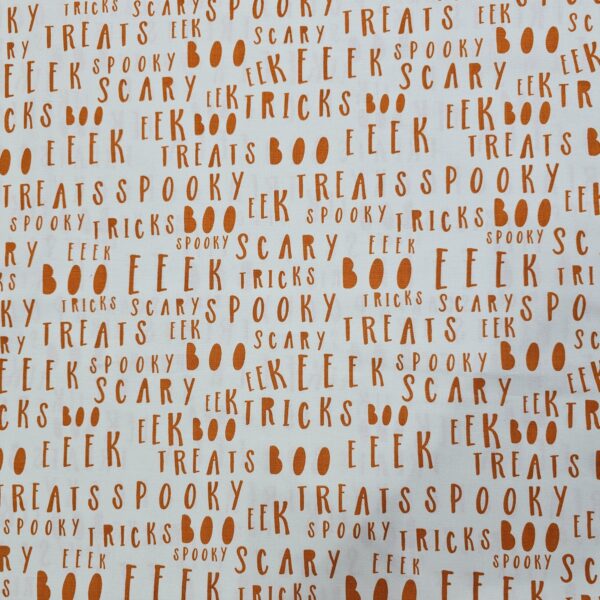 TRICKS SCARY SPOOKY
TREATS SCARY BOO
SCARY SPOOKY BOO EEK EEEK SPOOKY EEK
EEEK SCARY EEK SCARY EEEK
CKS BOO EEK TRICKS BOO EEK TRICKS
EEEK BOO TREATS BOO EEEK BOO TREATS
TREATS SPOOKY TREATS SPOOKY
SPOOKY TRICKS BOO EEK SPOOKY TRICKS BOO EEK
SPOOKY SCARY EEEK SPOOKY SC
BOO EEEK TRICKS BOO EEEK TRI
TRICKS SCARY SPOOKY TRICKS SCARY SPOO
TREATS EEK SCARY TREATS EEK
SPOOKY BOO EEK EEEK SPOOKY BOO
EEEK SCARY EEK SCARY EEEK
CKS BOO EEK BOO TRICKS BOO EEK BOO TRICKS
EEEK TREATS BOO EEEK TREATS
TREATS SPOOKY TREATS SPOOKY
SPOOKY TRICKS BOO EEK SPOOKY TRICKS BOO
EEEK SPOOKY SCARY EEEK SPOOKY SC
BOO EEEK TRICKS BOO EEEK TRI